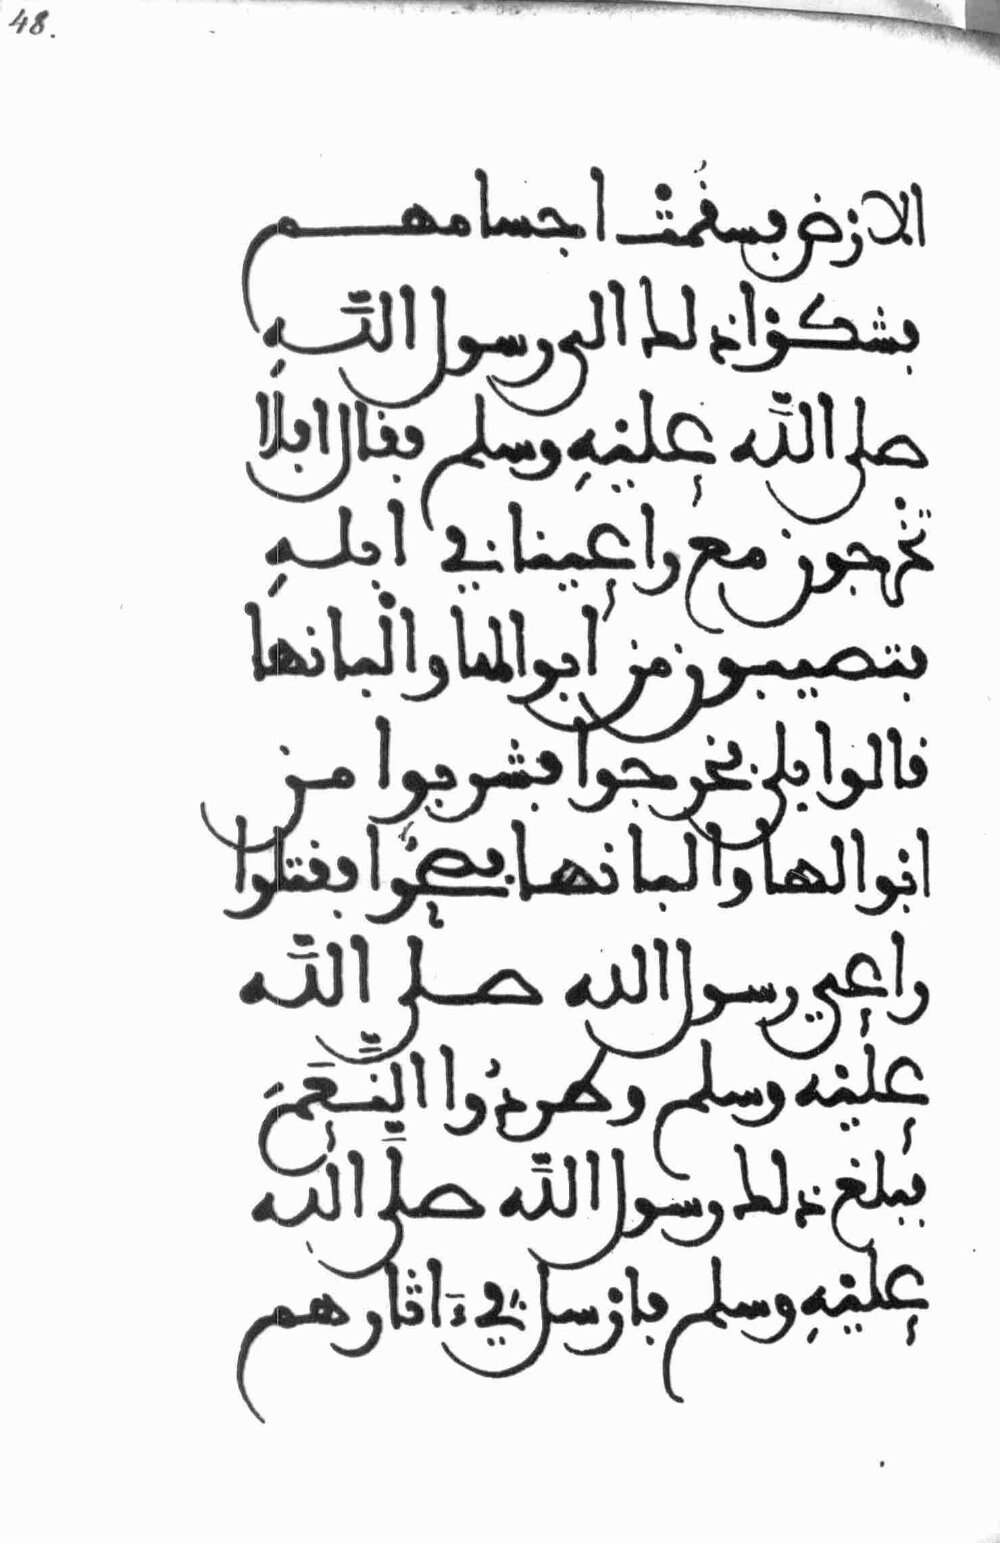 48.
الارض فسقمت اجسامهم
فشكوا ذلك الى رسول الله
صلى الله عليه وسلم فقال افلا
تخرجون مع راعينا في ابله
فتصيبون من ابوالها والبانها
قالوا بلى فخرجوا فشربوا من
ابوالها والبانها فصحوا فقتلوا
راعي رسول الله صلى الله
عليه وسلم وطردوا النعم
فبلغ ذلك رسول الله صلى الله
عليه وسلم فارسل في ءاثارهم